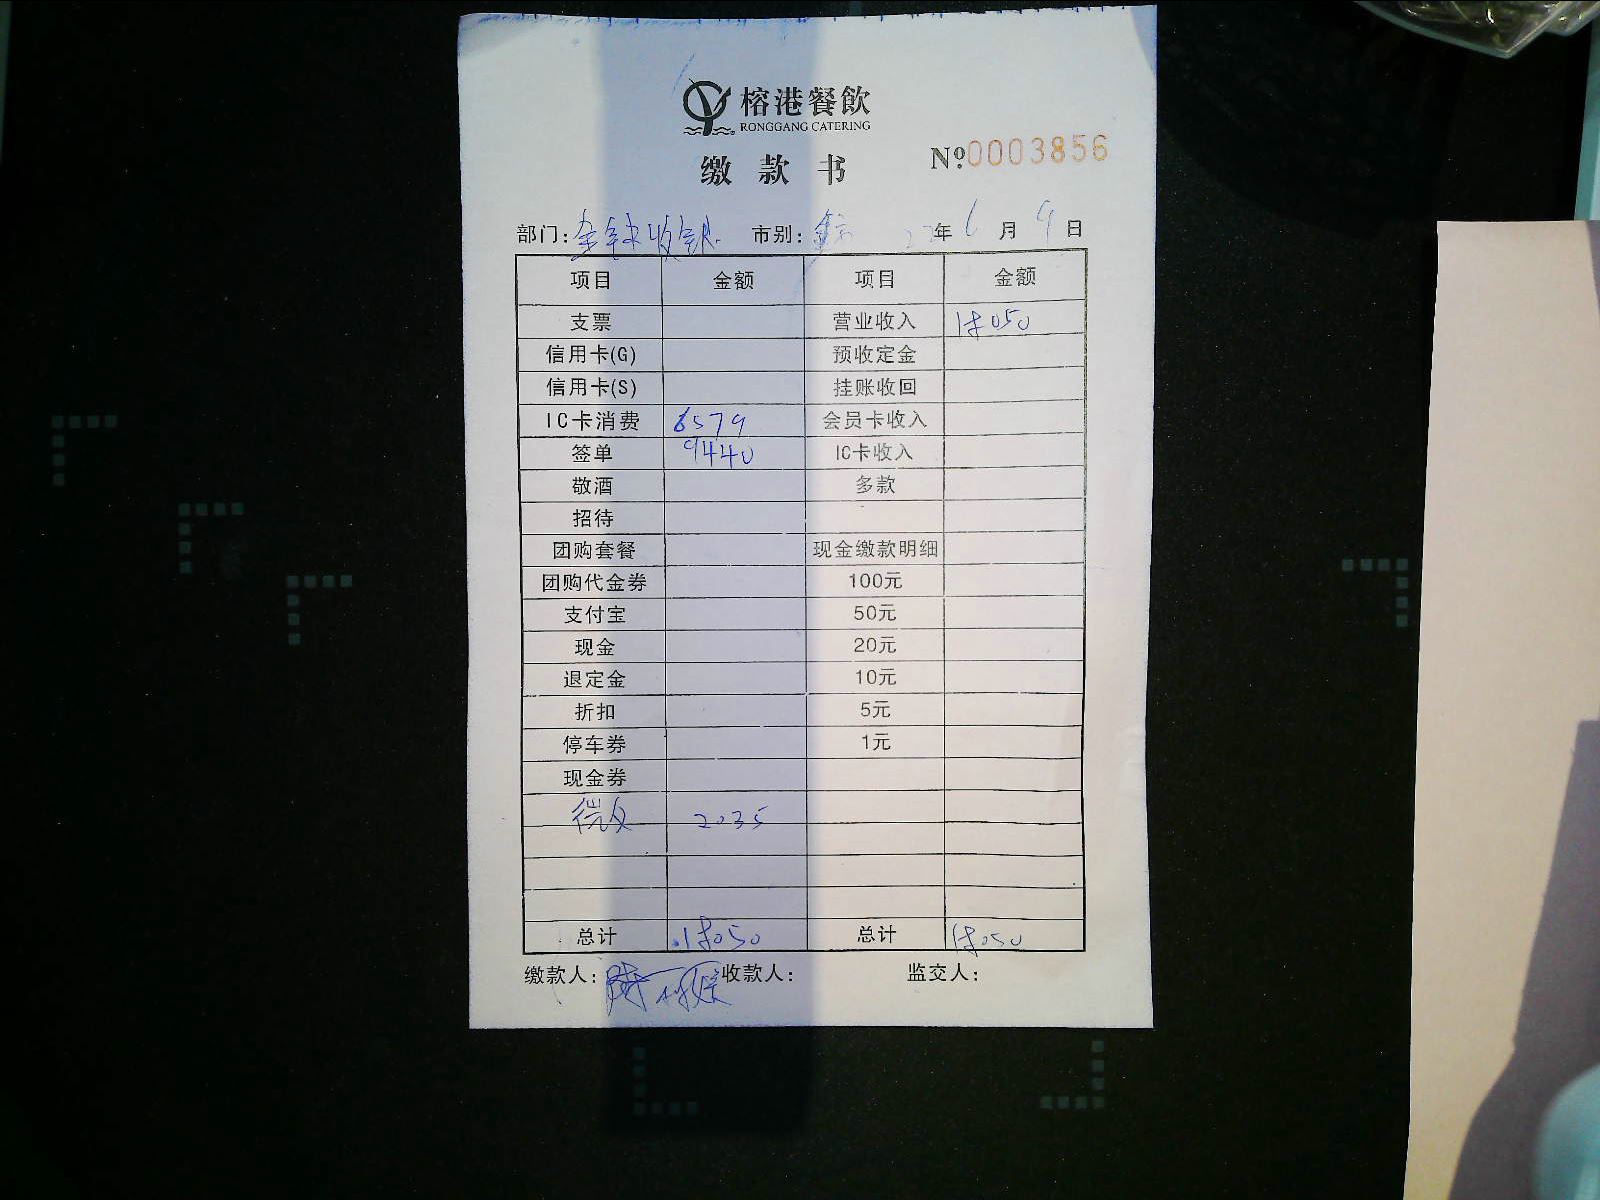 榕港餐飲
RONGGANG CATERING
缴款书
№0003856
部门: 市别: 年 6 月 9 日
项目 金额 项目 金额
支票 营业收入 18050
信用卡(G) 预收定金
信用卡(S) 挂账收回
IC卡消费 6579 会员卡收入
签单 9440 IC卡收入
敬酒 多款
招待
团购套餐 现金缴款明细
团购代金券 100元
支付宝 50元
现金 20元
退定金 10元
折扣 5元
停车券 1元
现金券
微支 2035
总计 18050 总计 18050
缴款人: 收款人: 监交人: